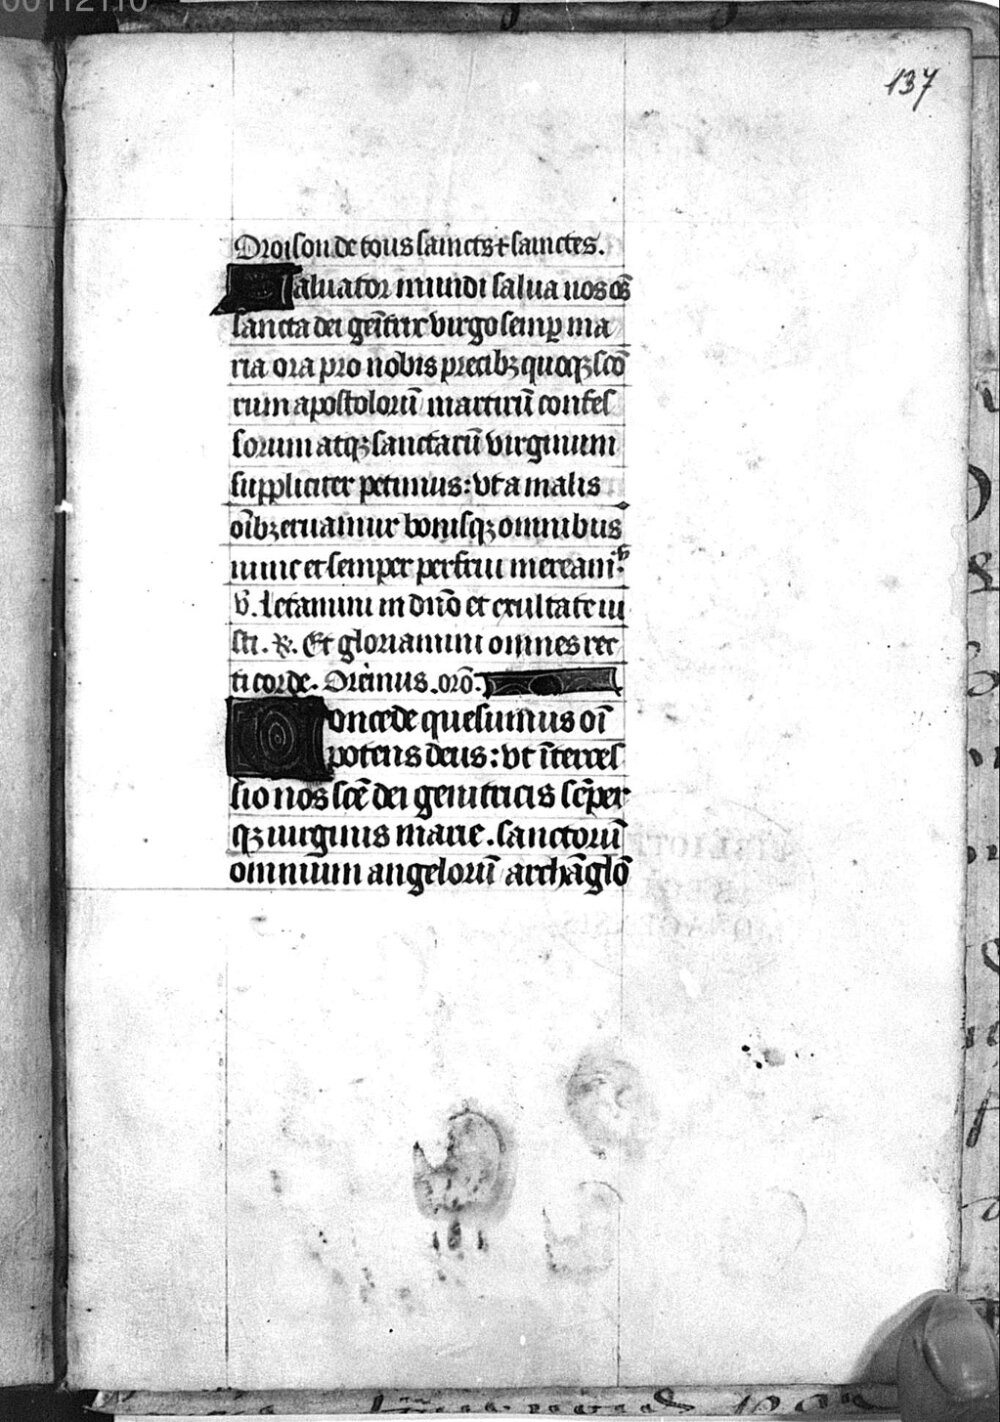 137
Oroison de tous saincts ⁊ sainctes.
Saluator mundi salua nos oēs
sancta dei geīitrix virgo semꝑ ma
ria ora pro nobis precibꝫ quoqꝫ scō
rum apostoloruū martirū confes
sorum atqꝫ sanctarū virginum
suppliciter petimus: vt a malis
oībꝫ eruamur bonisqꝫ omnibus
nunc et semper perfrui mereamʳ.
℣. Letamini in dnō et exultate iu
sti. ℟. Et gloriamini omnes rec
ti corde. Oremus. orō.
Concede quesumus oī
potens deus: vt īterces
sio nos scē dei genitricis sēper
qꝫ uirginis marie. sanctorū
omnium angelorū archāglō